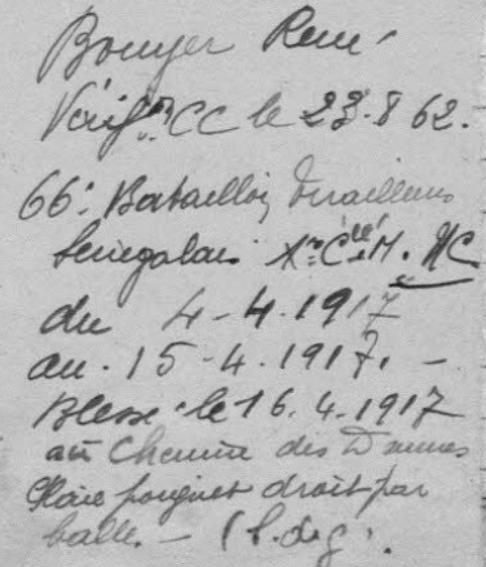 Bouyer René
Vérifon CC le 23.8 62.
66e Bataillon Tirailleurs
Senegalais Xe Cie M.
du 4-4.1917
au. 15-4.1917. -
Blessé le 16.4.1917
au Chemin des Dames
Plaie poignet droit par
balle. -